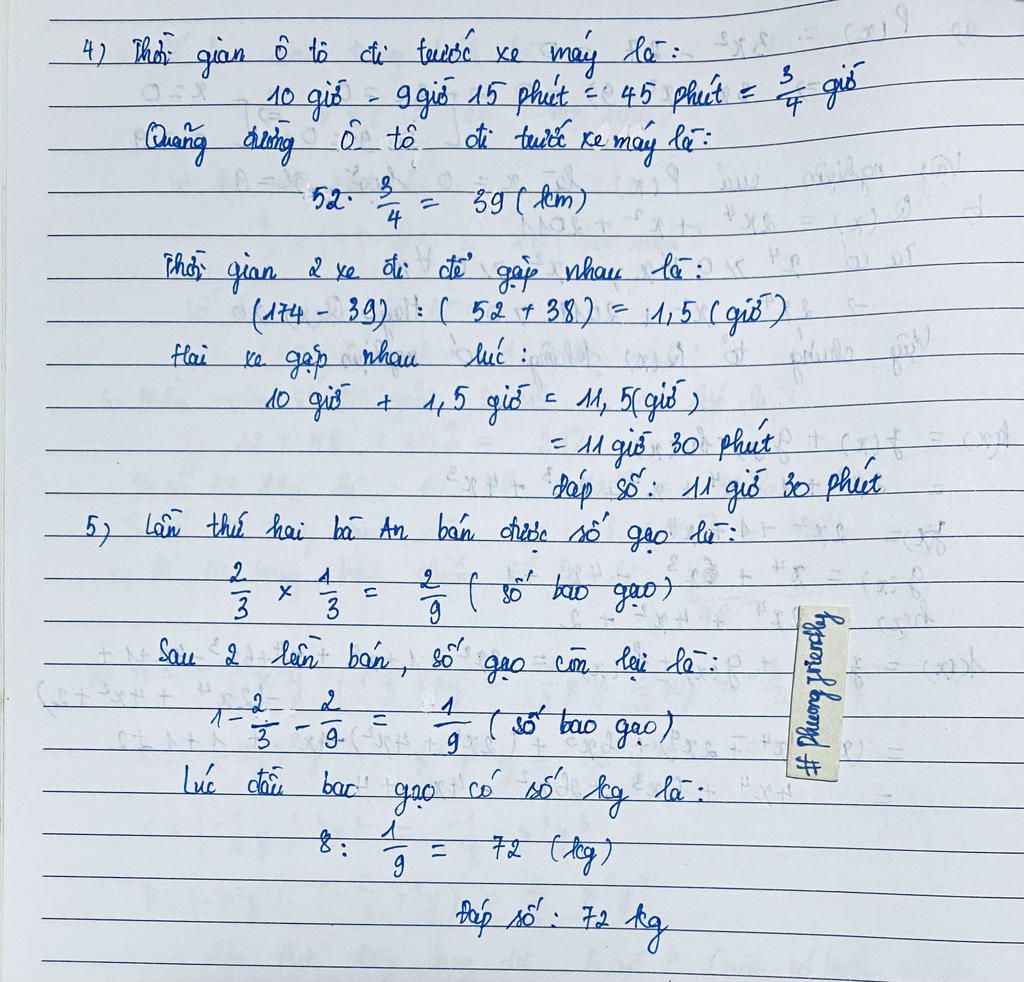 4) Thời gian ô tô đi trước xe máy là:
10 giờ = 9 giờ 15 phút = 45 phút = 3/4 giờ
Quãng đường ô tô đi trước xe máy là:
52 · 3/4 = 39 (km)
Thời gian 2 xe đi để gặp nhau là:
(174 - 39) : (52 + 38) = 1,5 (giờ)
Hai xe gặp nhau lúc:
10 giờ + 1,5 giờ = 11,5 (giờ)
= 11 giờ 30 phút
Đáp số: 11 giờ 30 phút
5) Lần thứ hai bà An bán được số gạo là:
2/3 × 1/3 = 2/9 (số bao gạo)
Sau 2 lần bán, số gạo còn lại là:
1 - 2/3 - 2/9 = 1/9 (số bao gạo)
Lúc đầu bao gạo có số kg là:
8 : 1/9 = 72 (kg)
Đáp số: 72 kg
# phuongfriendly